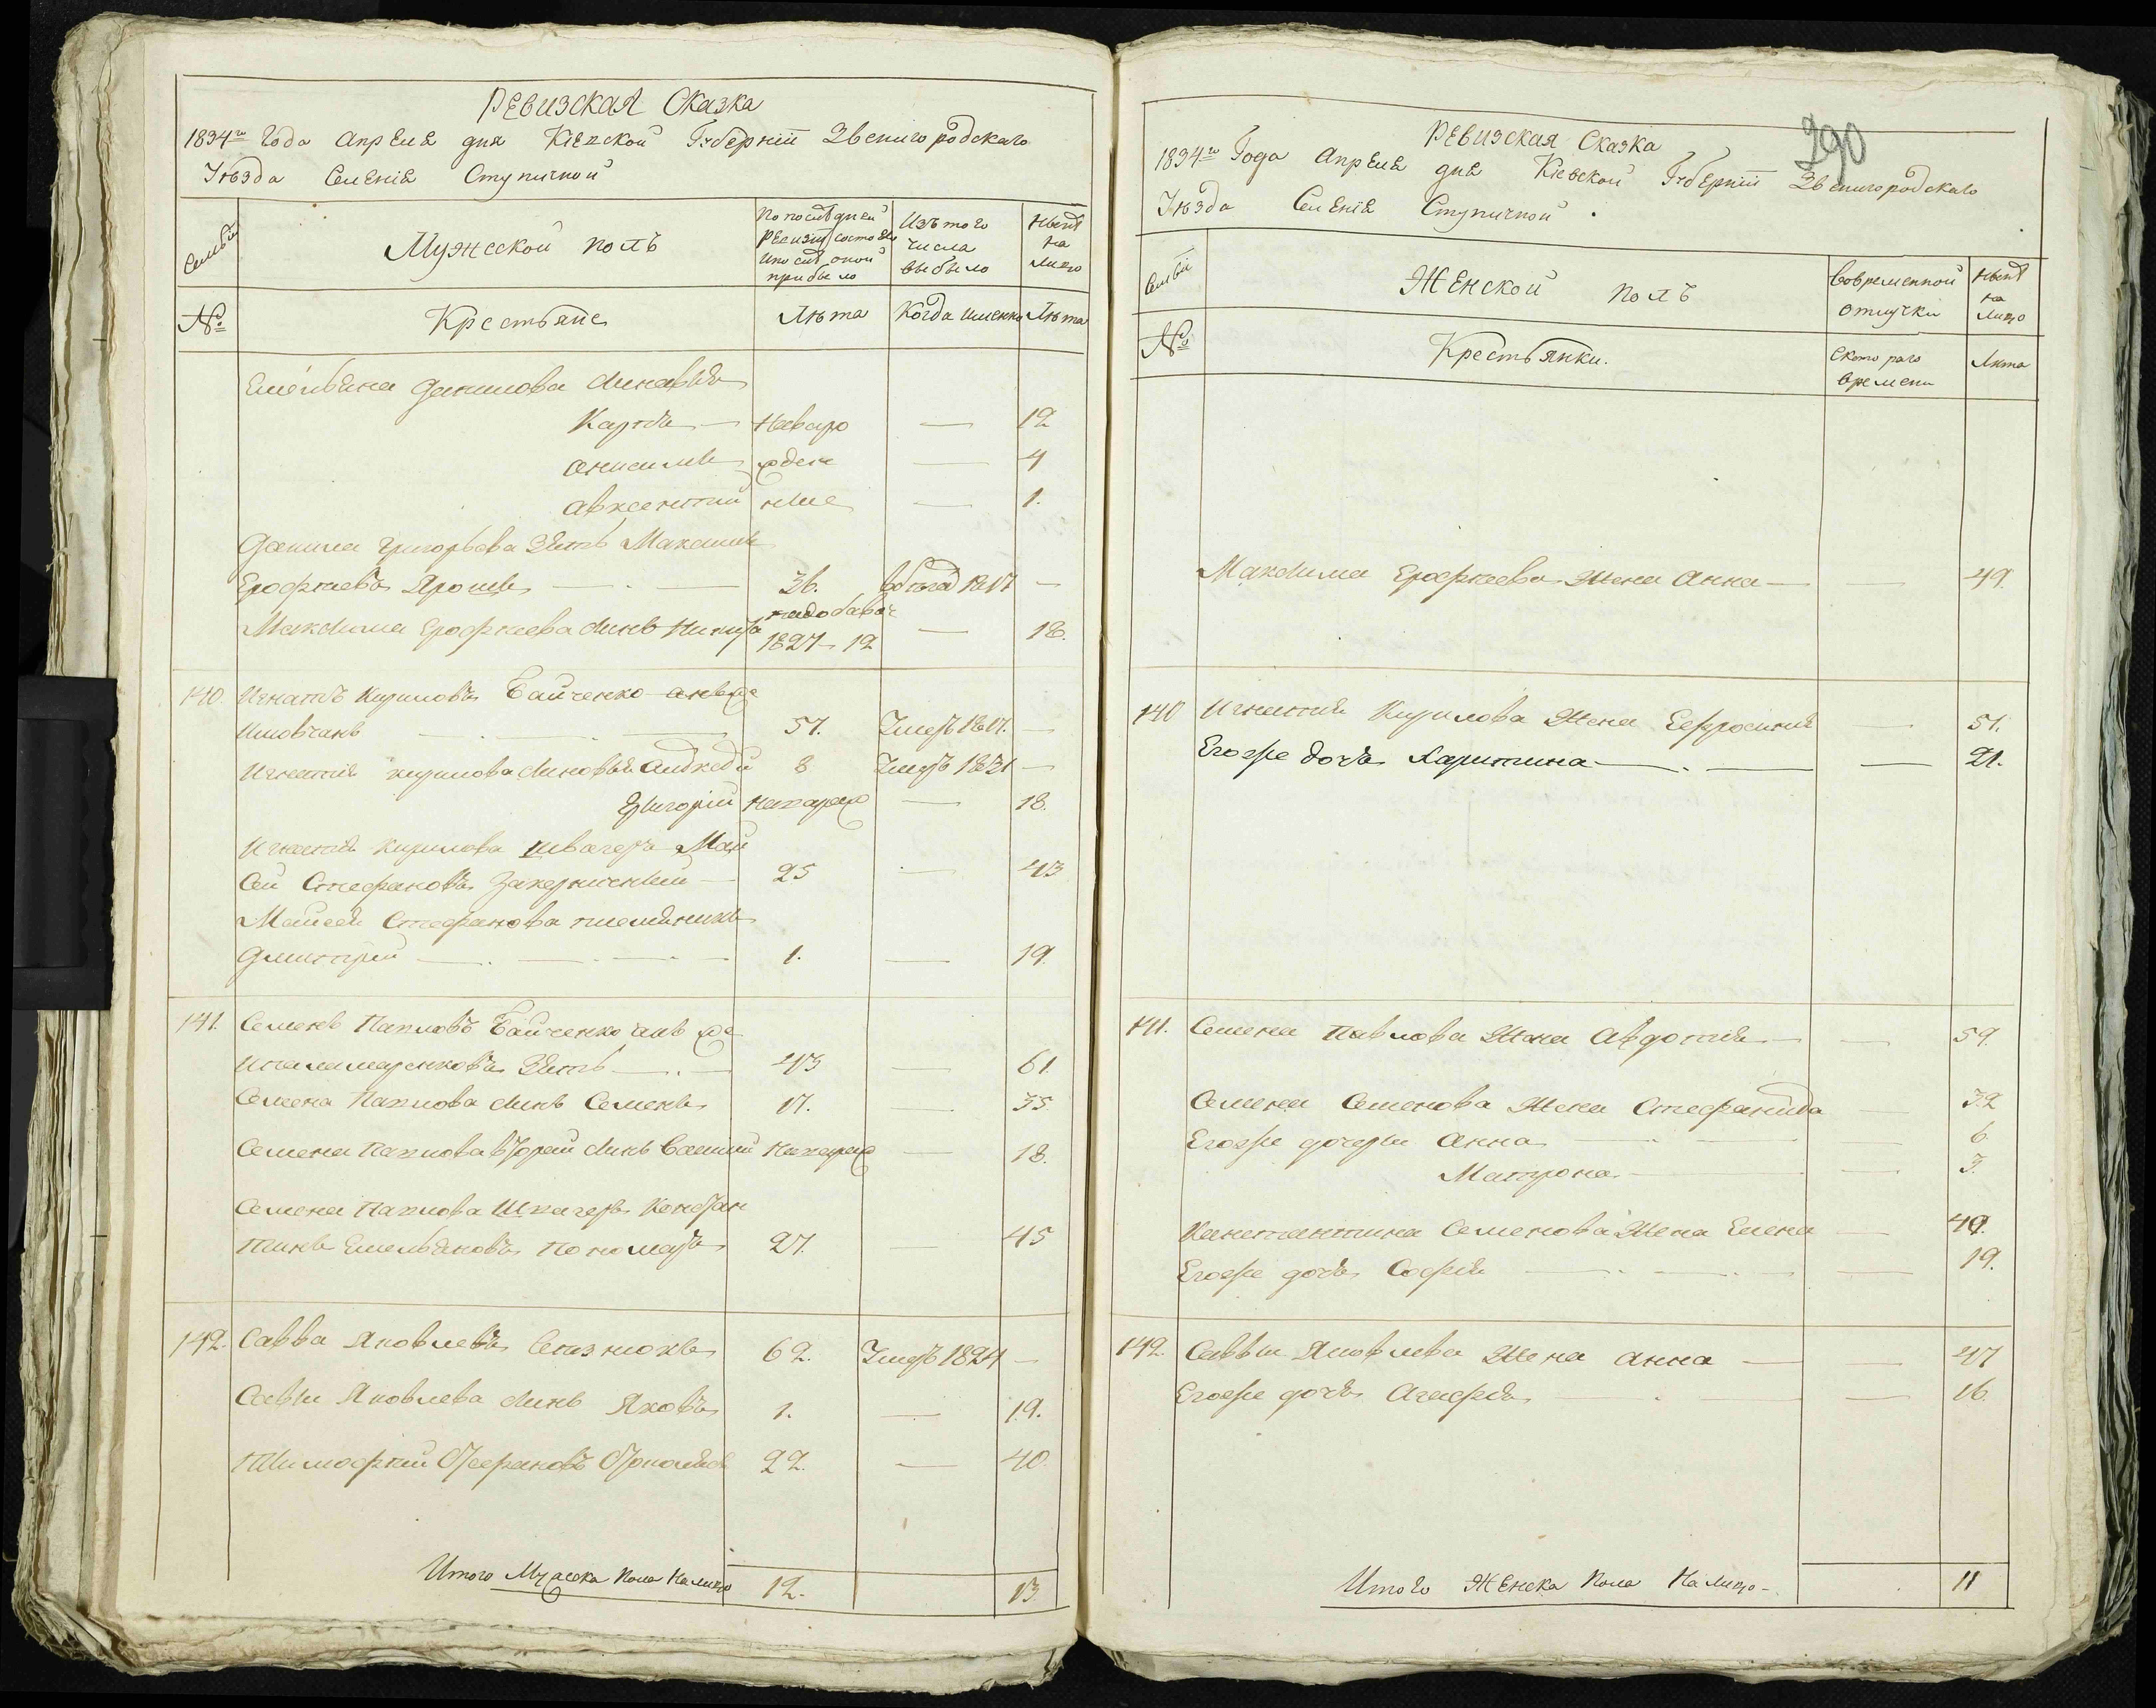 Ревизская Сказка
1834го Года Апреля дня Кіевской Губерніи Звенигородскаго
Уѣзда Селенія Ступичной
Семьи
Мужеской полъ
По последней ревизіи состояло и после оной прибыло
Изъ того числа выбыло
Ныне на лицо
№
Крестьяне
Лѣта
Когда именно
Лѣта
Емельяна Данилова синовья
Карпъ — Новоро — 12
Анисимъ жден — 4
Авксентий ные — 1.
Данила Григорьева Зять Максимъ
Ерофеевъ Ярошъ — 36. 1817 —
Максима Ерофеева синъ Никита 1827 12 — 18.
140. Игнатъ Кириловъ Байченко онъ же
Иловчанъ — 51. Умеръ 1817. —
Игнатия Кирилова синовья 8 Умеръ 1831 —
Григорій — 18.
Игнатия Кирилова швагеръ Мой
сей Стефановъ 25 — 43
Мойсея Стефанова племяникъ
Дмитрій — 1. — 19.
141. Семенъ Павловъ Байченко онъ же
Зять — 43 — 61.
Семена Павлова синъ Семенъ 17. — 35
Семена Павлова вторый синъ — 18.
Семена Павлова Швагеръ Констан
тинъ Емельяновъ Пономарь 27. — 45
142. Савва Яковлевъ 62. Умеръ 1824 —
Саввы Яковлева синъ Яковъ 1. — 19.
Тимофей Стефановъ 22. — 40.
Итого Мужеска Пола Налицо 12. 13
290
Ревизская Сказка
1834го Года Апреля дня Кіевской Губерніи Звенигородскаго
Уѣзда Селенія Ступичной.
Семьи
Женской полъ
Во временной отлучки
Ныне на лицо
№
Крестьянки.
С котораго времени
Лѣта
Максима Ерофеева Жена Анна — — 49.
140 Игнатия Кирилова Жена Ефросиния — 51.
Его же дочь Харитина — — 21.
141. Семена Павлова Жена Авдотия — — 59.
Семена Семенова Жена Стефанида — 32
Его же дочери Анна — — 6.
Матрона — — 3.
Константина Семенова Жена Елена — 40.
Его же дочь София — — 19.
142. Саввы Яковлева Жена Анна — — 47
Его же дочь Агафия — — 16.
Итого Женска Пола На лицо — 11